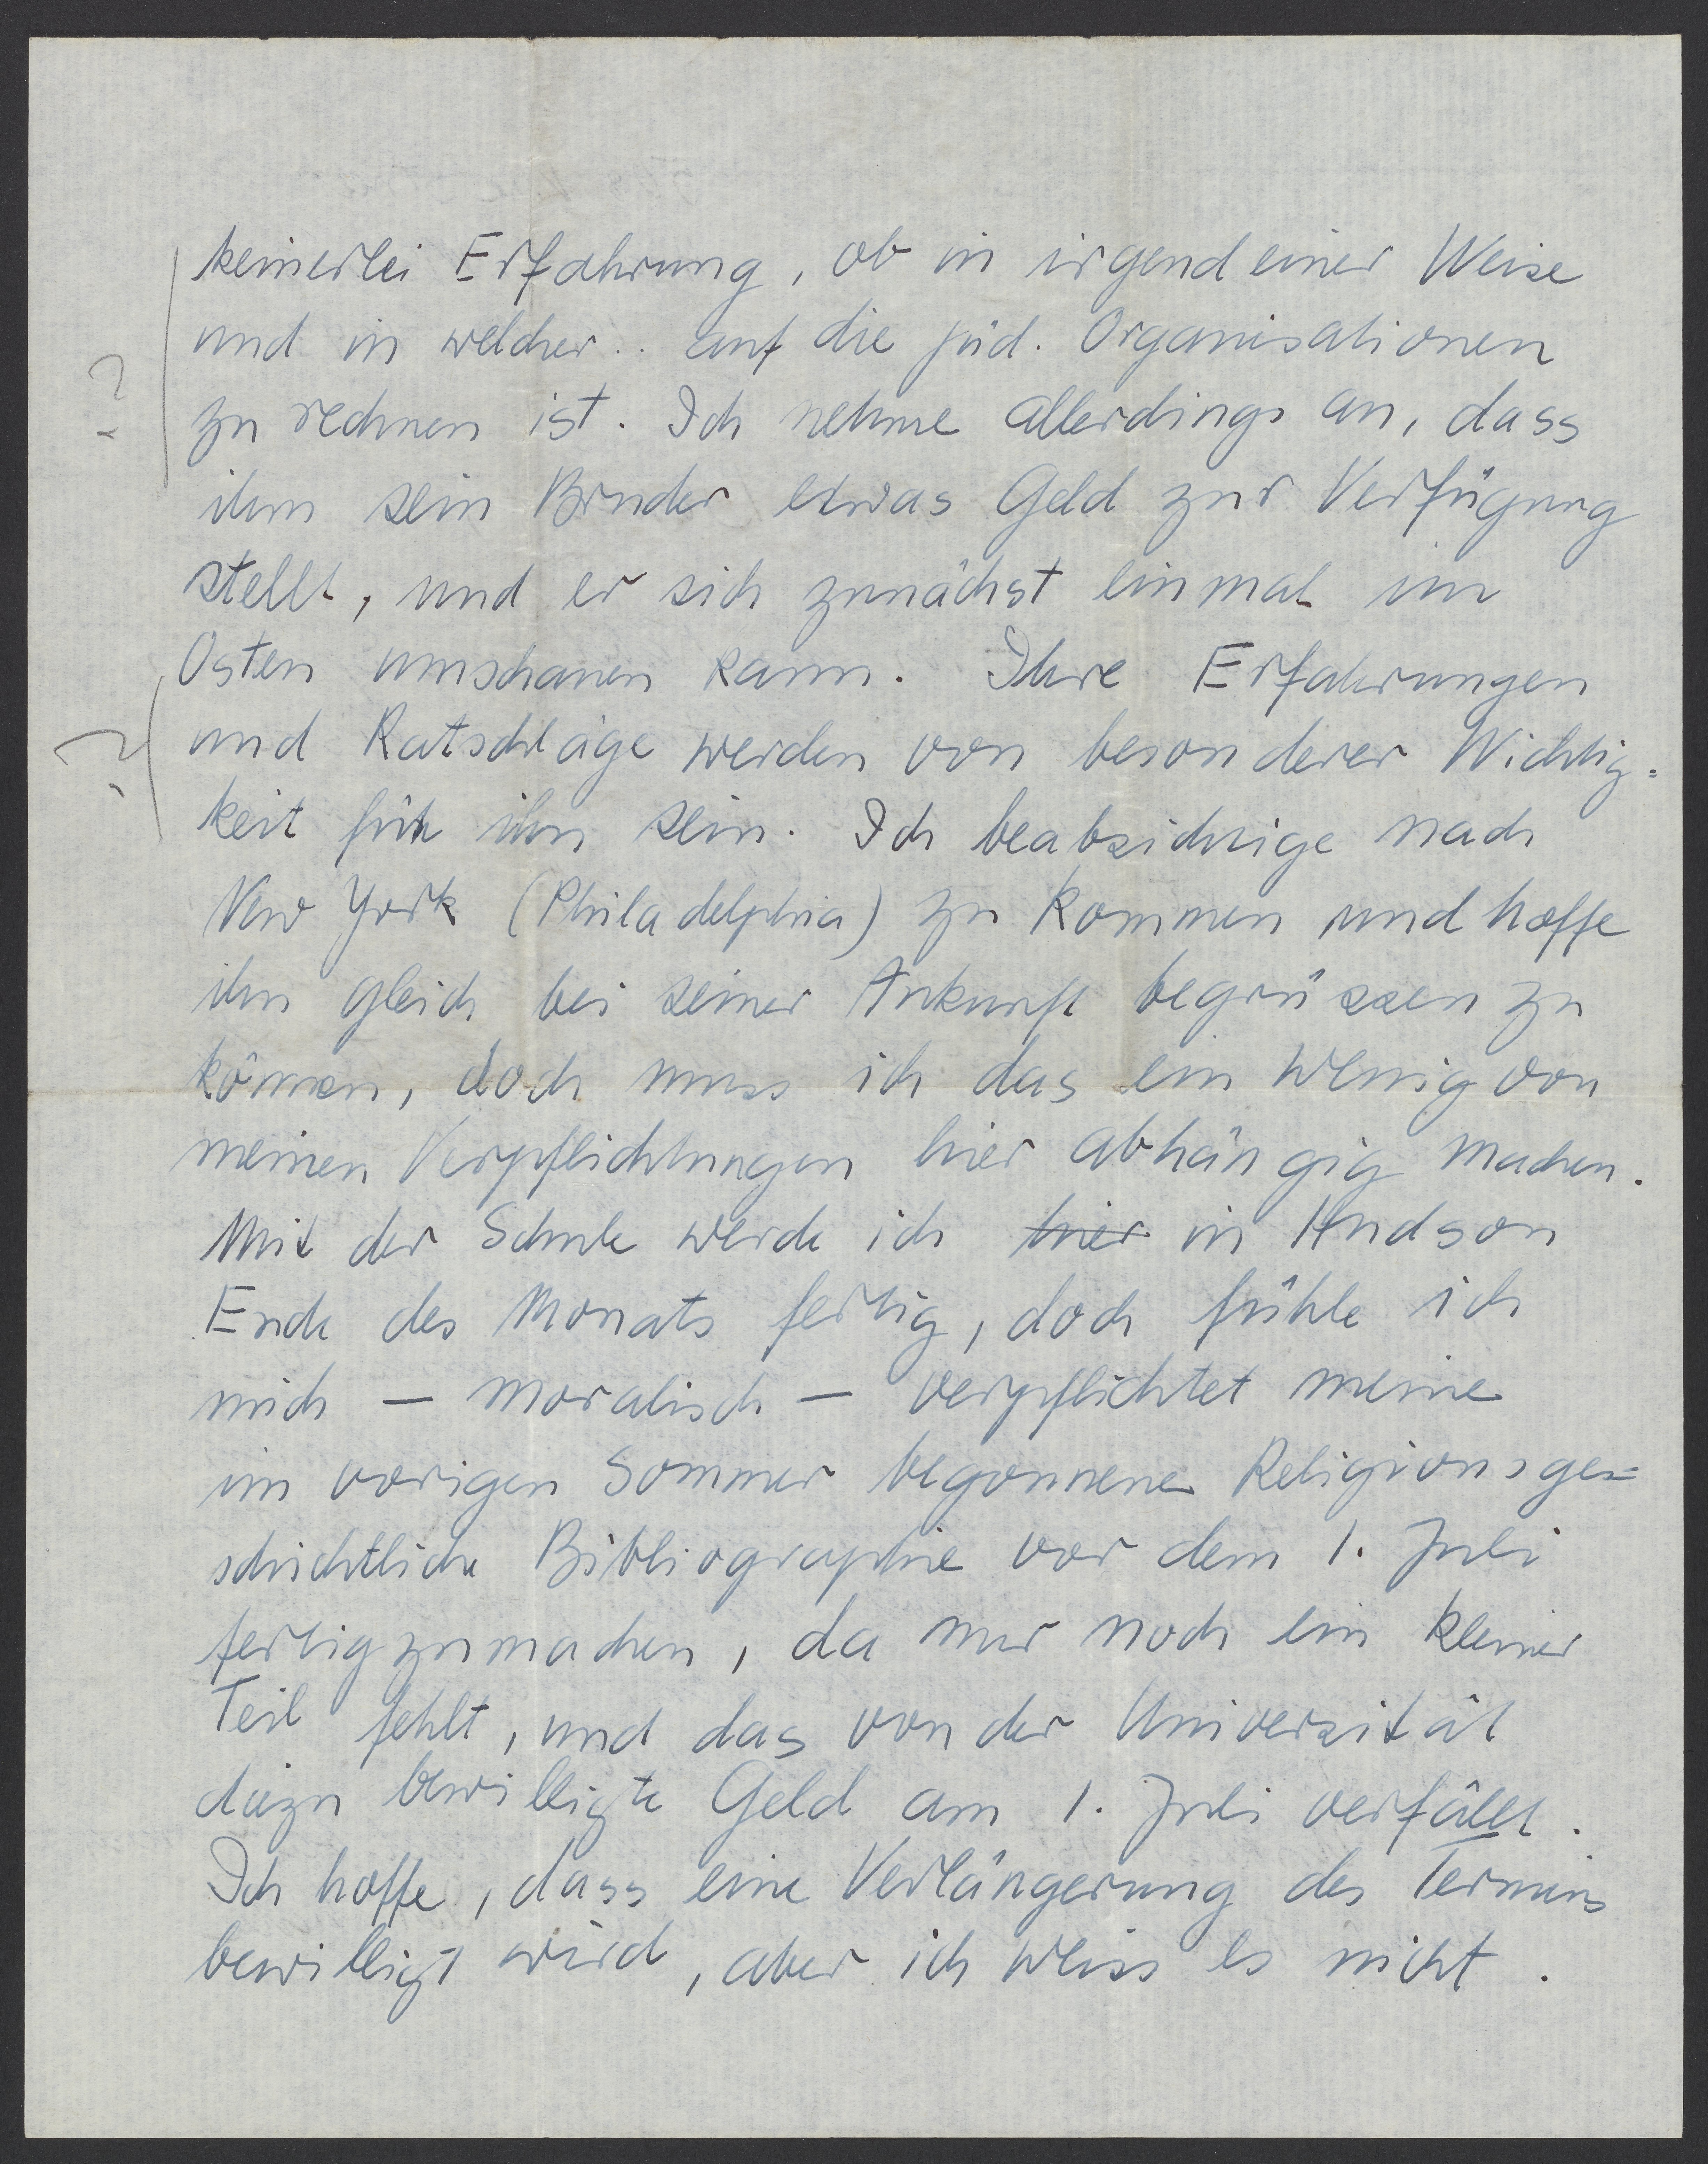 keinerlei Erfahrung, ob in irgend einer Weise
und in welcher.. auf die jüd. Organisationen
zu rechnen ist. Ich nehme allerdings an, dass
ihm sein Bruder etwas Geld zur Verfügung
stellt, und er sich zunächst einmal im
Osten umschauen kann. Ihre Erfahrungen
und Ratschläge werden von besonderer Wichtig=
keit für ihn sein. Ich beabsichtige nach
New York (Philadelphia) zu kommen und hoffe
ihn gleich bei seiner Ankunft begrüssen zu
können, doch muss ich das ein wenig von
meinen Verpflichtungen hier abhängig machen.
Mit der Schule werde ich hier in Hudson
Ende des Monats fertig, doch fühle ich
mich — moralisch — verpflichtet meine
im vorigen Sommer begonnene Religionsge=
schichtliche Bibliographie vor dem 1. Juli
fertigzumachen, da nur noch ein kleiner
Teil fehlt, und das von der Universität
dazu bewilligte Geld am 1. Juli verfällt.
Ich hoffe, dass eine Verlängerung des Termins
bewilligt wird, aber ich weiss es nicht.
?
?